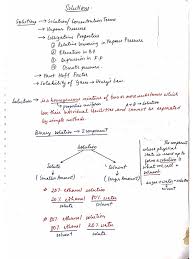 Solutions
Solutions → Solutions/ Concentration Terms
→ Vapour Pressure
→ Colligative Properties
① Relative lowering in Vapour Pressure
② Elevation in B.P
③ Depression in F.P
④ Osmotic pressure
→ Van't Hoff Factor
→ Solubility of Gases → Henry's law
Solution: → is a homogeneous mixture of two or more substances which
properties uniform
lose their individual identities and cannot be separated
by simple methods.
Binary solution → 2 component
Solution
Solute
(Smaller Amount)
Solvent
(larger Amount)
The component
whose physical
state is same
to form a
solution is
what we call
solvent
sugar + water
solute solvent
20% ethanol solution
20% ethanol 80% water
solute solvent
80% ethanol solution
80% ethanol 20% water
solvent solute